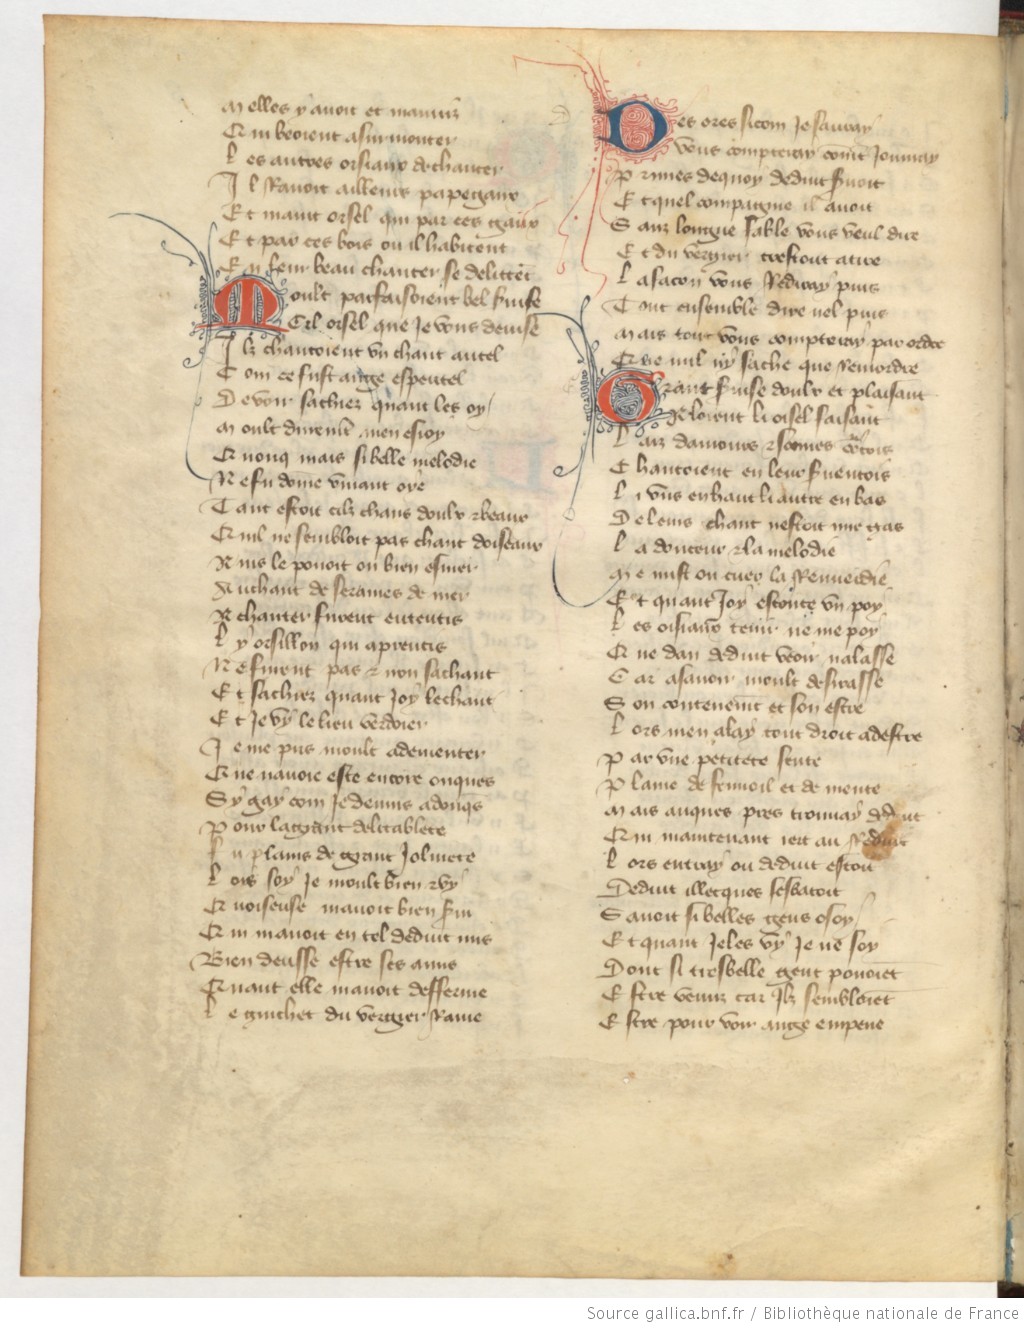 Melles y avoit et mauviz
Qui beoient a surmonter
Les autres oisiaux de chanter
Il ravoit ailleurs papegaux
Et maint oisel qui par ces gaux
Et par ces bois ou il habitent
En leur beau chanter se delitent
Moult parfaisoient bel servise
Cil oisel que je vous devise
Ilz chantoient un chant autel
Com ce fust ange espeutel
De voir sachiez quant les oy
Moult durement men esioy
Que onq mais si belle melodie
Ne fu dome vivant oye
Tant estoit cilz chans doulx et beaux
Quil ne sembloit pas chant doiseaux
Mais le pouoit on bien esmer
Au chant de seraines de mer
A chanter furent ententis
Ly oisillon qui aprentis
Ne furent pas et non sachant
Et sachiez quant joy le chant
Et je vy le lieu verdoier
Je me pris moult a dementer
Que navoie este encore onques
Sy gay com je devins adonqs
Pour la grant delitablete
Fu plains de grant jolivete
Lors soy je moult bien et vy
Que oiseuse mavoit bien servi
Qui mavoit en tel deduit mis
Bien deusse estre ses amis
Quant elle mavoit desferme
Le guichet du vergier rame
Des ores si com je sauray
Vous compteray coment jouvray
Primes de quoy deduit servoit
Et quel compaignie il avoit
Sanz longue fable vous veul dire
Et du vergier trestout a tire
La facon vous rediray puis
Tout ensemble dire nel puis
Mais tout vous compteray par ordre
Que nul ny sache que remordre
Grant servise doulx et plaisant
Aloient li oisel faisant
Laiz damours et sonnes cortois
Chantoient en leur serventois
Li uns en hault li autre en bas
De leurs chant nestoit mie gas
La douceur et la melodie
Me mist ou cuer la reverdie
Et quant joy escoute un poy
Les oisiaux tenir ne me poy
Que dan deduit veoir nalasse
Car a savoir moult desirasse
Son contenement et son estre
Lors men alay tout droit a destre
Par une petitete sente
Plaine de fenoil et de mente
Mais auques pres trouvay deduit
Qui maintenant iert au reduit
Lors entray ou deduit estoit
Deduit illecques sesbatoit
Savoit si belles gens o soy
Et quant je les vy je ne soy
Dont si tresbelle gent pouoient
Estre venuz car ilz sembloient
Estre pour voir ange empene
Source gallica.bnf.fr / Bibliothèque nationale de France